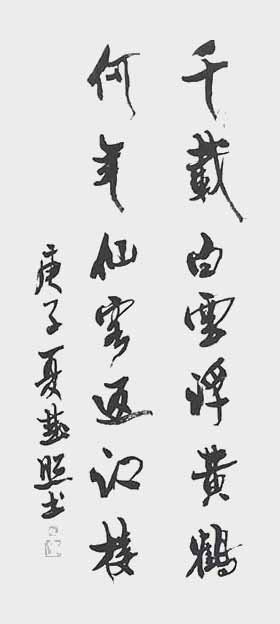 千載白雲浮黄鶴
何年仙客返江樓
庚子夏照书